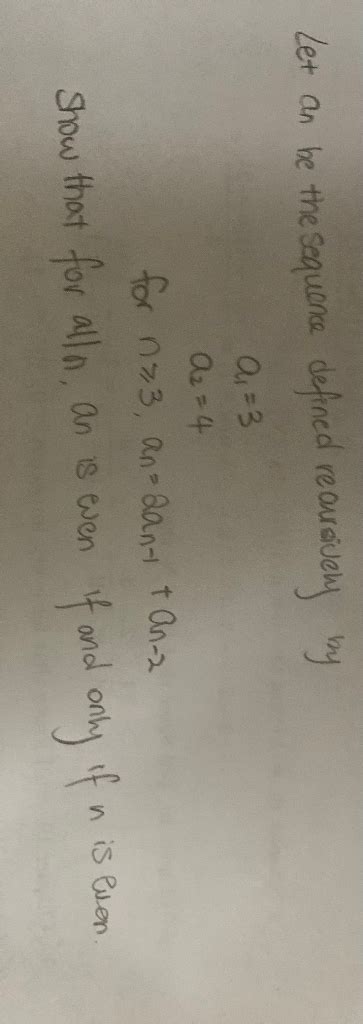 Let an be the sequence defined recursively by
a₁ = 3
a₂ = 4
for n ≥ 3, an = 2an-1 + an-2
Show that for all n, an is even if and only if n is even.